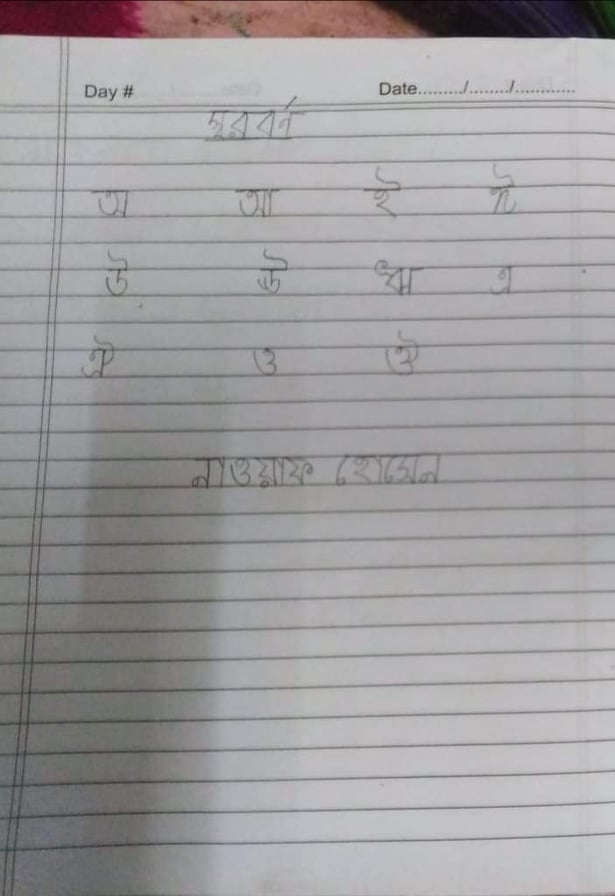 Day #                    Date........./......../............
স্বরবর্ণ
অ আ ই ঈ
উ ঊ ঋ এ
ঐ ও ঔ
নাওয়াফ হোসেন